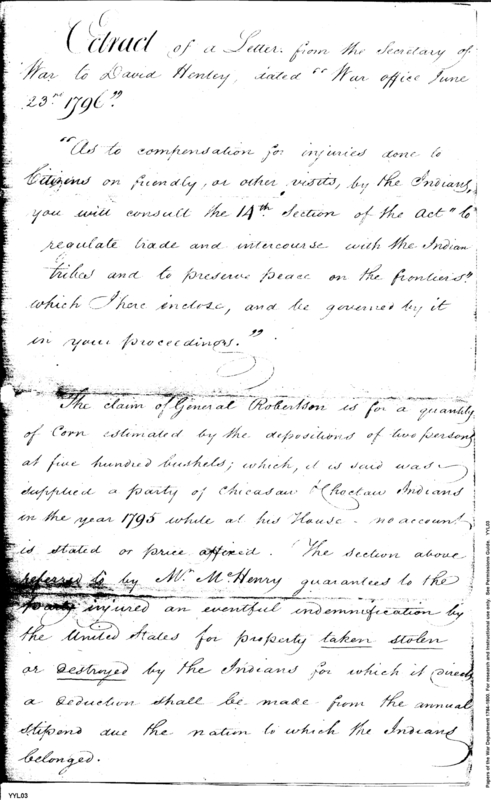 Extract of a Letter from the Secretary of
War to David Henley, dated "War office June
23rd 1796"
"As to compensation for injuries done to
Citizens on friendly, or other visits, by the Indians,
you will consult the 14th Section of the Act "to
regulate trade and intercourse with the Indian
tribes and to preserve peace on the frontiers"
which I here inclose, and be governed by it
in your proceedings."
The claim of General Robertson is for a quantity
of Corn estimated by the depositions of two persons
at five hundred bushels; which, it is said was
supplied a party of Chicasaw & Choctaw Indians
in the year 1795 while at his House - no account
is stated or price affixed. The section above
referred to by Mr. McHenry guarantees to the
party injured an eventful indemnification by
the United States for property taken stolen
or destroyed by the Indians for which it directs
a deduction shall be made from the annual
stipend due the nation to which the Indians
belonged.
YYL03
Papers of the War Department 1784-1800. For research and instructional use only. See Permissions Guide. YYL03